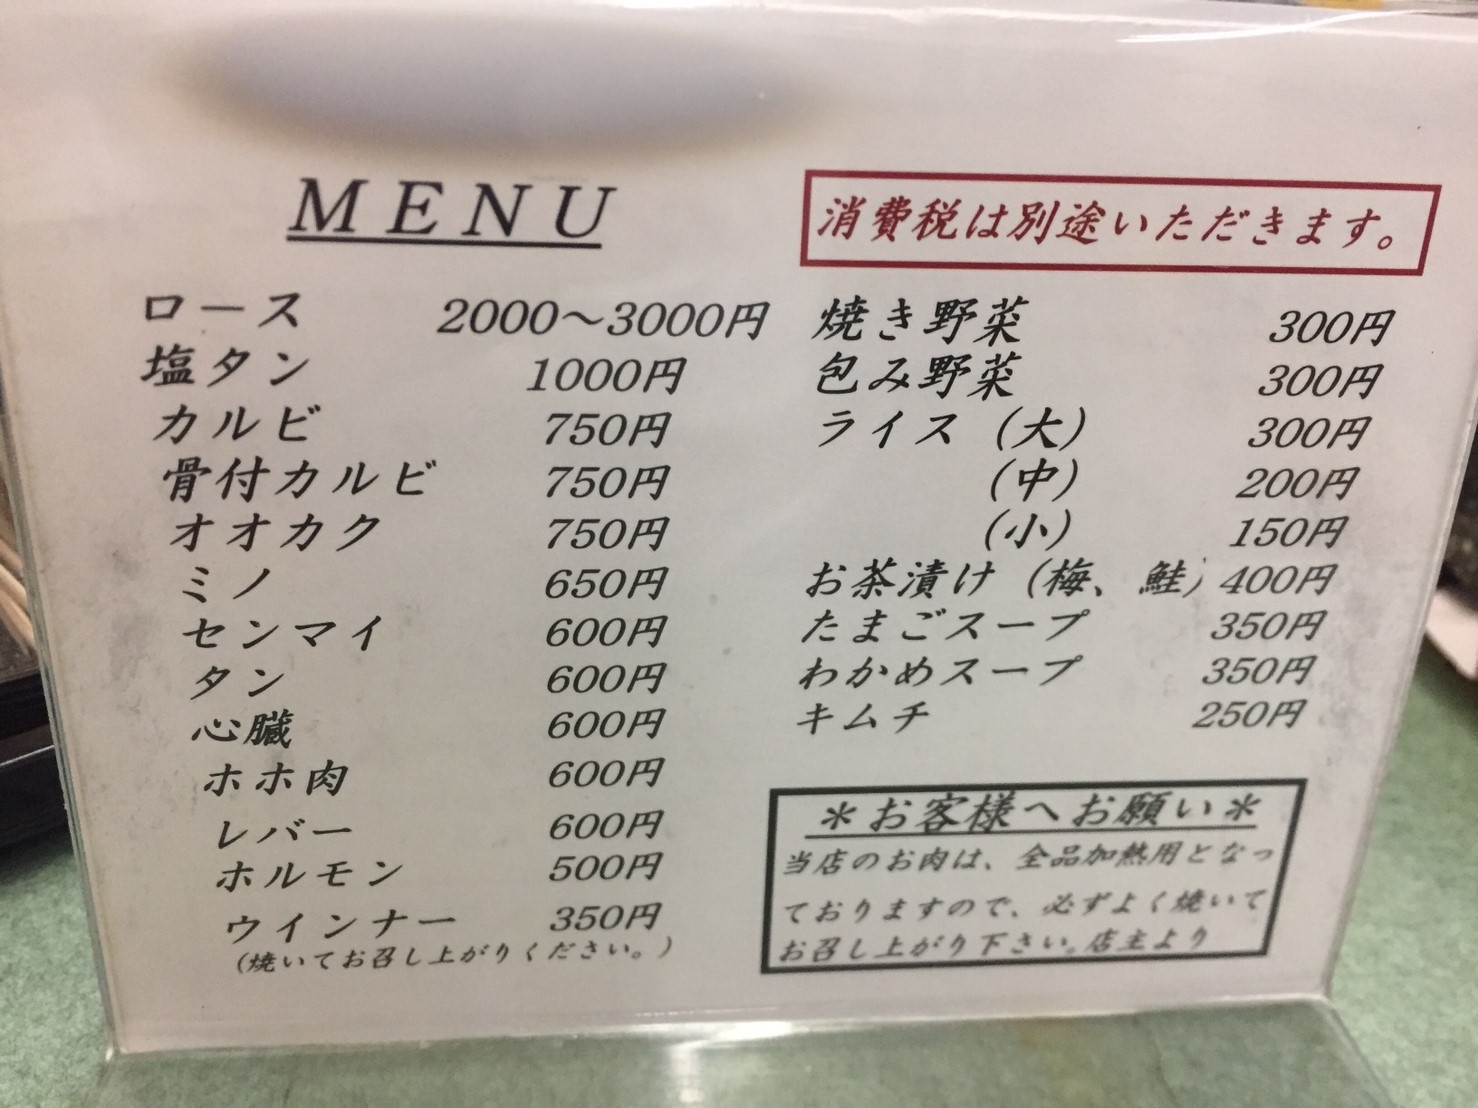 MENU
ロース 2000～3000円
塩タン 1000円
カルビ 750円
骨付カルビ 750円
オオカク 750円
ミノ 650円
センマイ 600円
タン 600円
心臓 600円
ホホ肉 600円
レバー 600円
ホルモン 500円
ウインナー 350円
（焼いてお召し上がりください。）
消費税は別途いただきます。
焼き野菜 300円
包み野菜 300円
ライス（大） 300円
（中） 200円
（小） 150円
お茶漬け（梅、鮭） 400円
たまごスープ 350円
わかめスープ 350円
キムチ 250円
＊お客様へお願い＊
当店のお肉は、全品加熱用となっ
ておりますので、必ずよく焼いて
お召し上がり下さい。店主より